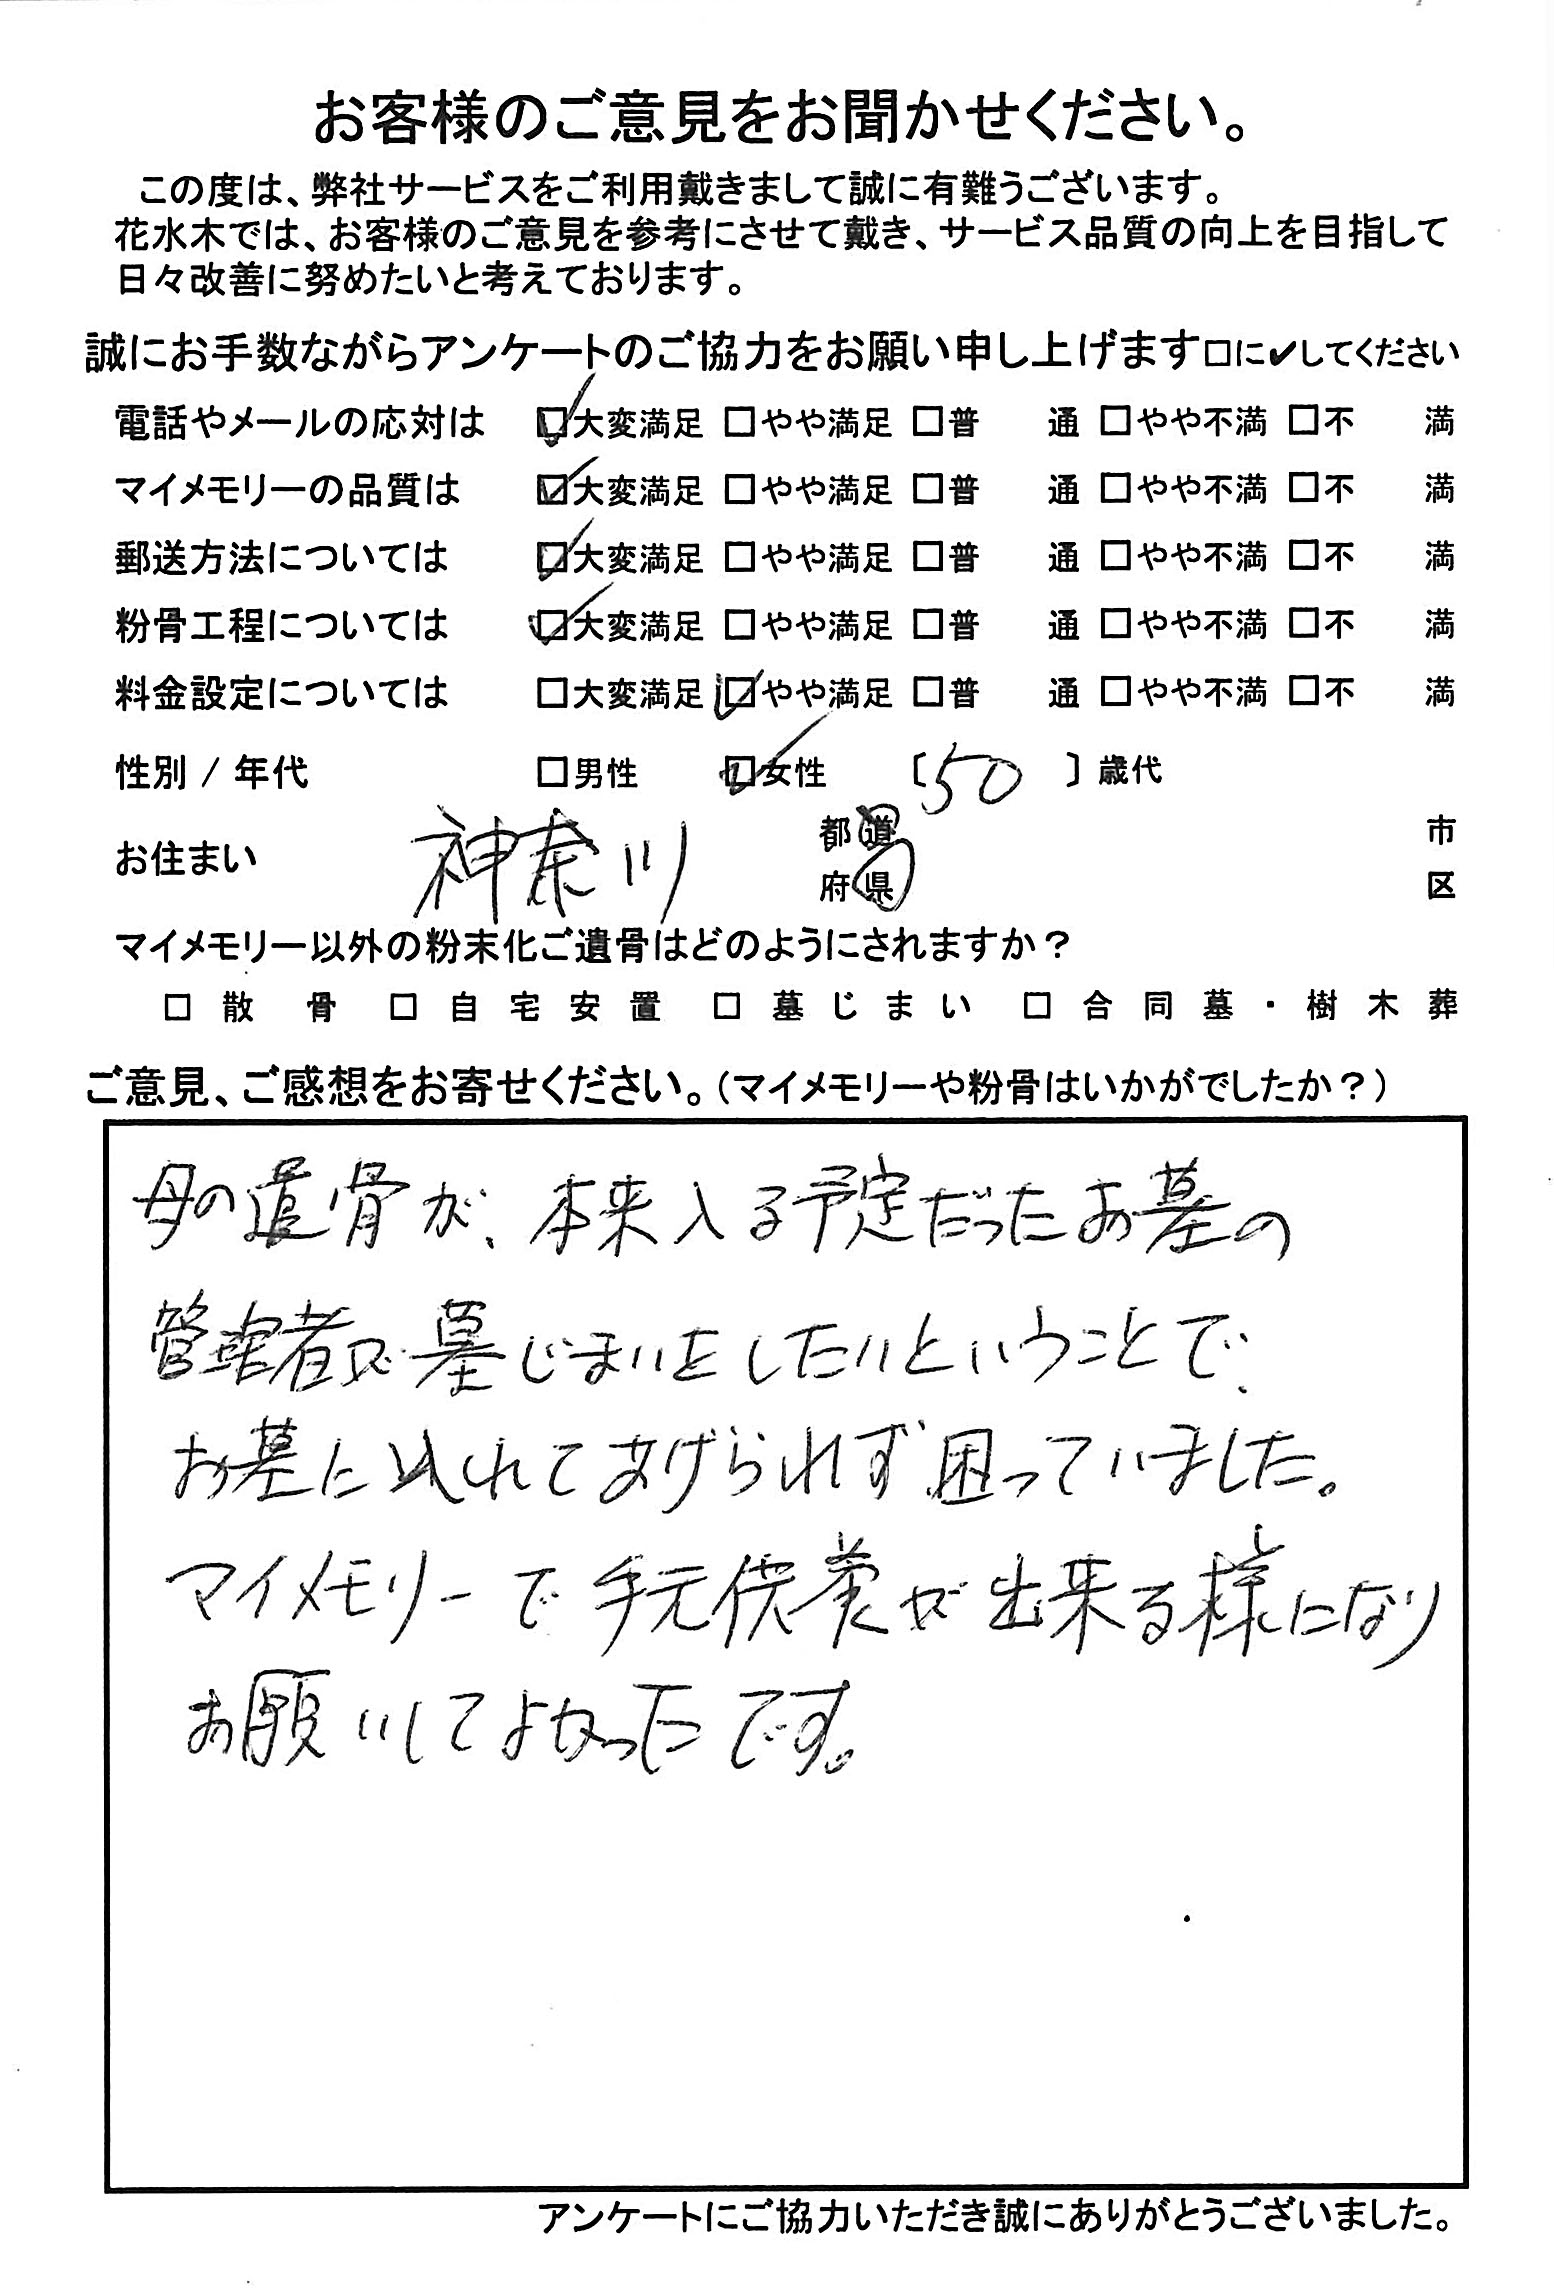 お客様のご意見をお聞かせください。
この度は、弊社サービスをご利用戴きまして誠に有難うございます。
花水木では、お客様のご意見を参考にさせて戴き、サービス品質の向上を目指して
日々改善に努めたいと考えております。
誠にお手数ながらアンケートのご協力をお願い申し上げます□に✔してください
電話やメールの応対は ☑大変満足 □やや満足 □普 通 □やや不満 □不 満
マイメモリーの品質は ☑大変満足 □やや満足 □普 通 □やや不満 □不 満
郵送方法については ☑大変満足 □やや満足 □普 通 □やや不満 □不 満
粉骨工程については ☑大変満足 □やや満足 □普 通 □やや不満 □不 満
料金設定については □大変満足 ☑やや満足 □普 通 □やや不満 □不 満
性別 / 年代 □男性 ☑女性 〔50〕歳代
お住まい 神奈川 都道府県 市区
マイメモリー以外の粉末化ご遺骨はどのようにされますか？
□ 散骨 □ 自宅安置 □ 墓じまい □ 合同墓・樹木葬
ご意見、ご感想をお寄せください。（マイメモリーや粉骨はいかがでしたか？）
母の遺骨が、本来入る予定だったお墓の
管理者が墓じまいをしたいということで、
お墓に入れてあげられず困っていました。
マイメモリーで手元供養が出来る様になり
お願いしてよかったです。
アンケートにご協力いただき誠にありがとうございました。